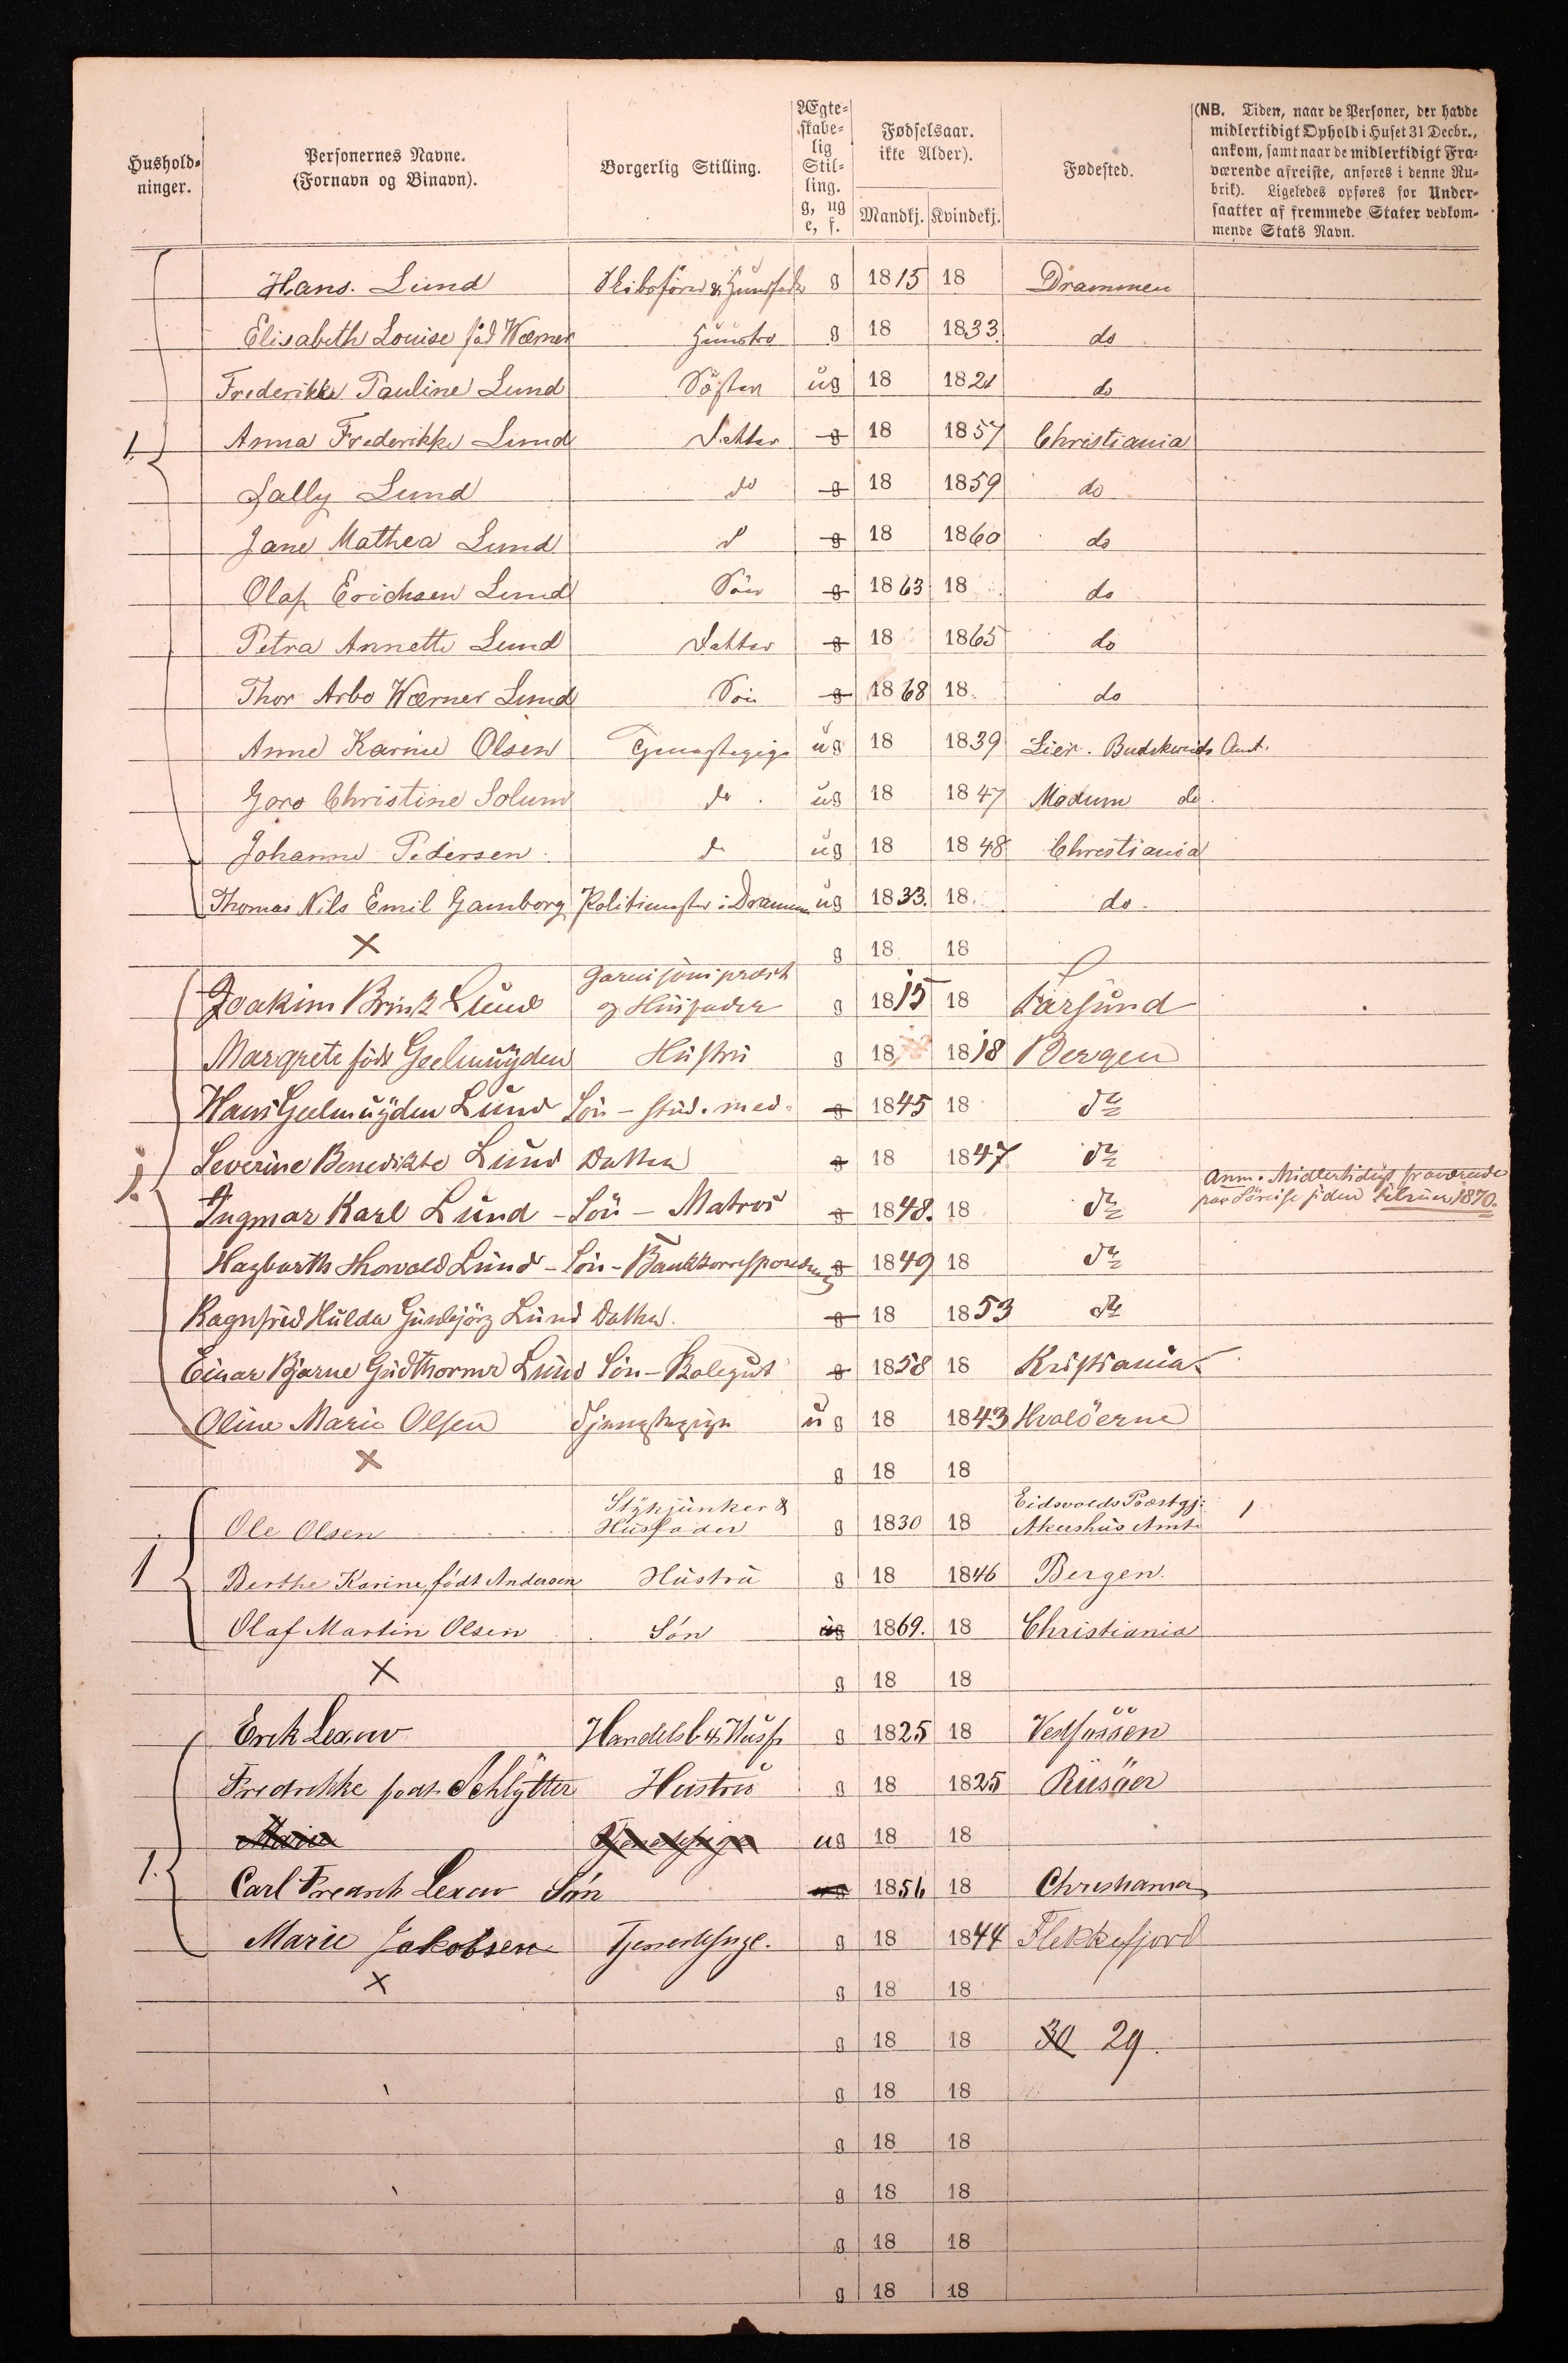 Hushold-
ninger.
Personernes Navne.
(Fornavn og Binavn).
Borgerlig Stilling.
Ægte-
skabe-
lig
Stil-
ling.
g, ug
e, f.
Fødselsaar.
ikte Alder).
Mandkj. Kvindekj.
Fødested.
(NB. Tiden, naar de Personer, der havde
midlertidigt Ophold i Huset 31 Decbr.,
ankom, samt naar de midlertidigt Fra-
værende afreiste, anføres i denne Ru-
brik). Ligeledes opføres for Under-
saatter af fremmede Stater vedkom-
mende Stats Navn.
Hans. Lund Skibsfører & Huusfader g 1815 18 Drammen
Elisabeth Louise fød Wærner Huustro g 18 1833. do
Frederikke Pauline Lund Søster ug 18 1821 do
1. Anna Frederikke Lund Datter g 18 1857 Christiania
Sally Lund do g 18 1859 do
Jane Mathea Lund d g 18 1860 do
Olaf Erichsen Lund Søn g 1863 18 do
Petra Annette Lund Datter g 18 1865 do
Thor Arbo Wærner Lund Søn g 1868 18 do
Anne Karine Olsen Tjenestepige ug 18 1839 Lier. Buskeruds Amt.
Goro Christine Solum do. ug 18 1847 Modum do.
Johanne Pedersen d ug 18 1848 Christiania
Thomas Nils Emil Gamborg Politimester i Drammen ug 1833. 18 do.
X g 18 18
Garnisonspræst
Joakim Brink Lund og Husfader g 1815 18 Farsund
Margrete født Geelmuyden Hustru g 18 1818 Bergen
Hans Geelmuyden Lund Søn - stud. med. g 1845 18 do
Severine Benedikte Lund Datter g 18 1847 do
Anm. Midlertidigt fraværende
1. Ingmar Karl Lund - Søn - Matros g 1848. 18 do paa Søreise siden februar 1870.
Hagbarth Thorvald Lund - Søn - Bankkorrespondent g 1849 18 do
Ragnfrid Hulda Gunbjörg Lund Datter. g 18 1853 do
Einar Bjarne Gudthormr Lund Søn - g 1858 18 Kristiania
Oline Marie Olsen Tjenestepige ug 18 1843 Hvaløerne
X g 18 18
Stykjunker & Eidsvolds Præstgj:
Ole Olsen Husfader g 1830 18 Akershus Amt. 1
1 Berthe Karine født Andersen Hustru g 18 1846 Bergen.
Olaf Martin Olsen Søn ug 1869. 18 Christiania
X g 18 18
Erik Lexow Handelsb. & Husf. g 1825 18 Vestfossen
Fredrikke født Schlytter Hustru g 18 1825 Riisöer
Marie Tjenestepige ug 18 18
1. Carl Fredrik Lexow Søn ug 1856 18 Christiania
Marie Jakobsen Tjenestepige. g 18 1844 Flekkefjord
X g 18 18
g 18 18 30 29.
g 18 18
g 18 18
g 18 18
g 18 18
g 18 18